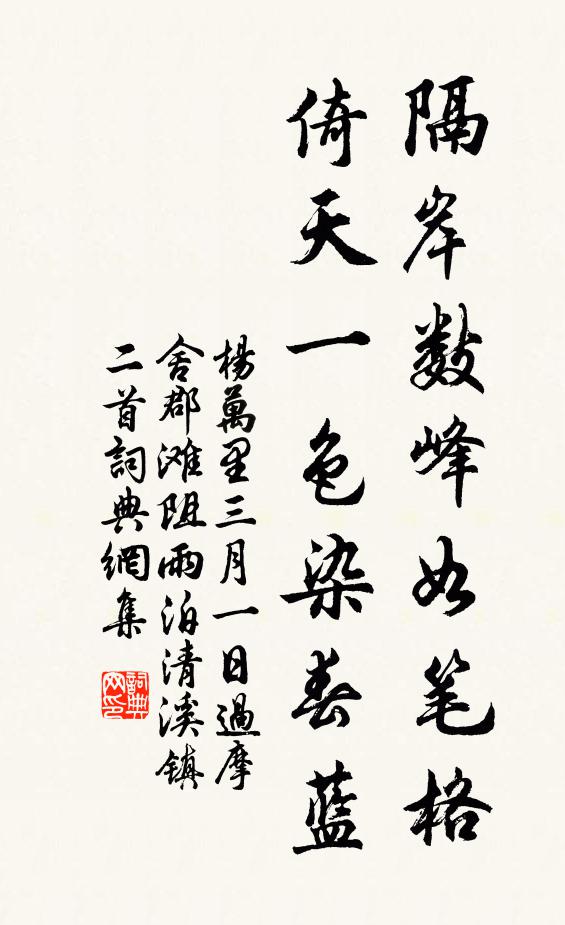 隔岸数峰如笔格
倚天一色染春藍
楊萬里三月一日過摩
舍郡滩阻雨泊清溪镇
二首詞典網集
詞典网印